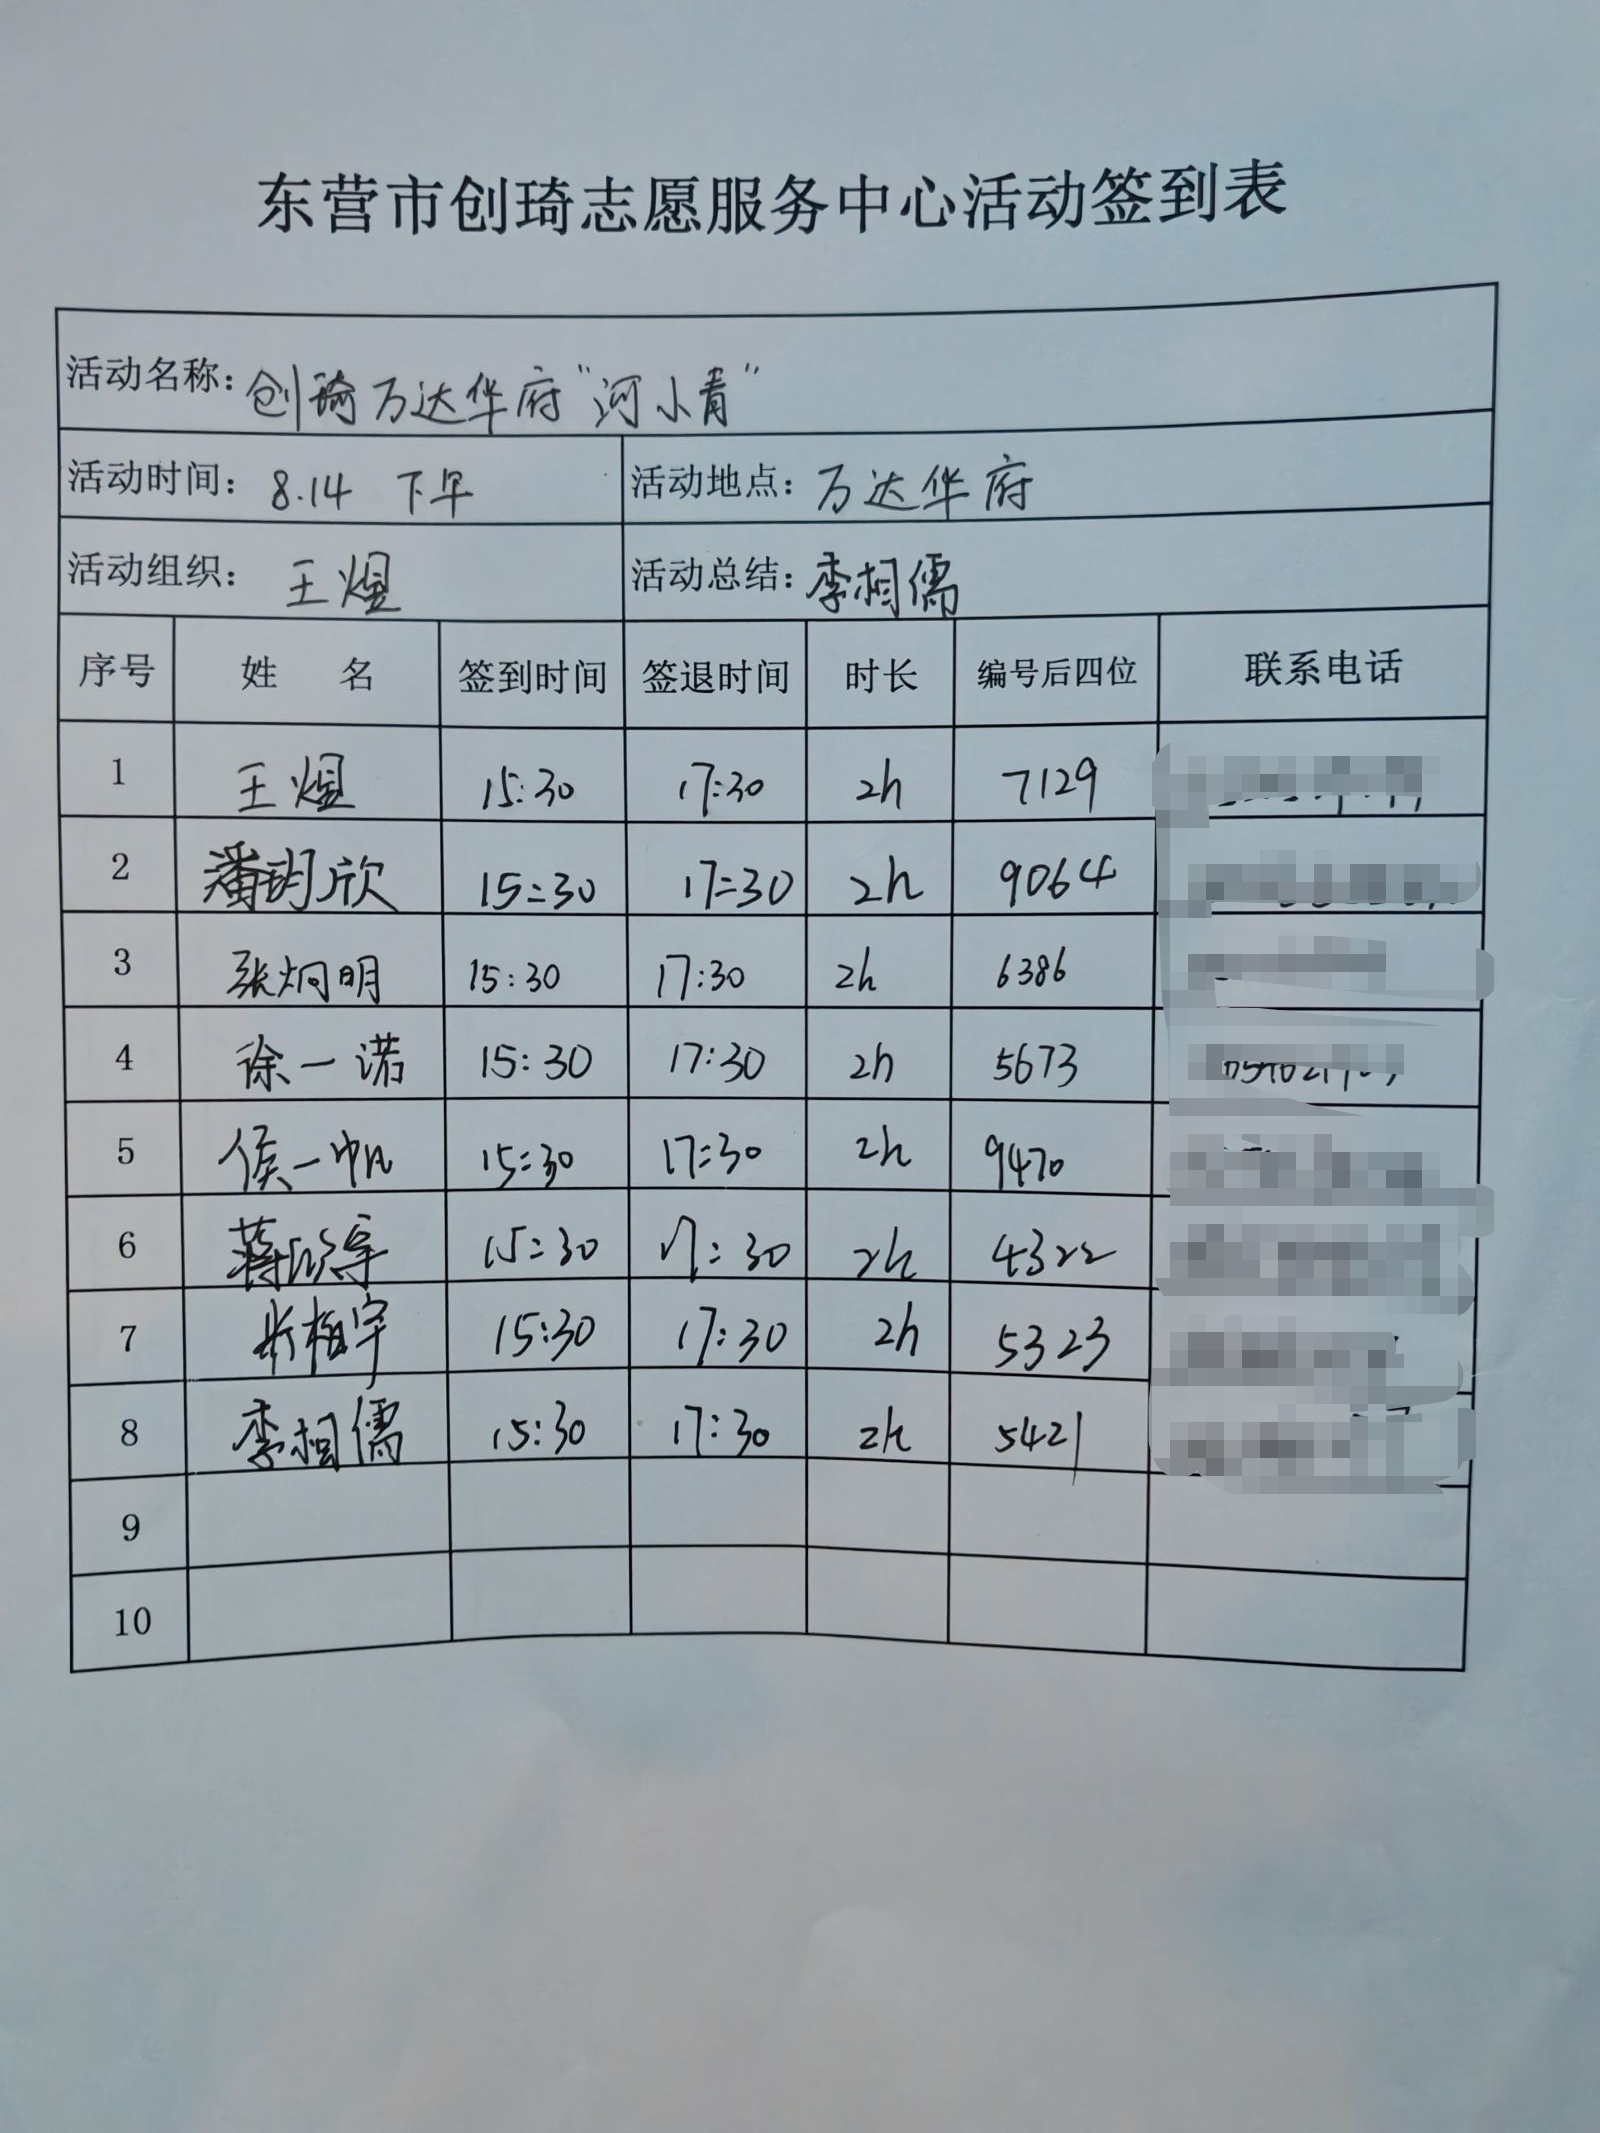 东营市创琦志愿服务中心活动签到表
活动名称：创琦万达华府“河小青”
活动时间：8.14 下午 活动地点：万达华府
活动组织：王煜 活动总结：李相儒
序号 姓 名 签到时间 签退时间 时长 编号后四位 联系电话
1 王煜 15:30 17:30 2h 7129
2 潘玥欣 15:30 17:30 2h 9064
3 张炯明 15:30 17:30 2h 6386
4 徐一诺 15:30 17:30 2h 5673
5 侯一帆 15:30 17:30 2h 9470
6 15:30 17:30 2h 4322
7 15:30 17:30 2h 5323
8 李相儒 15:30 17:30 2h 5421
9
10